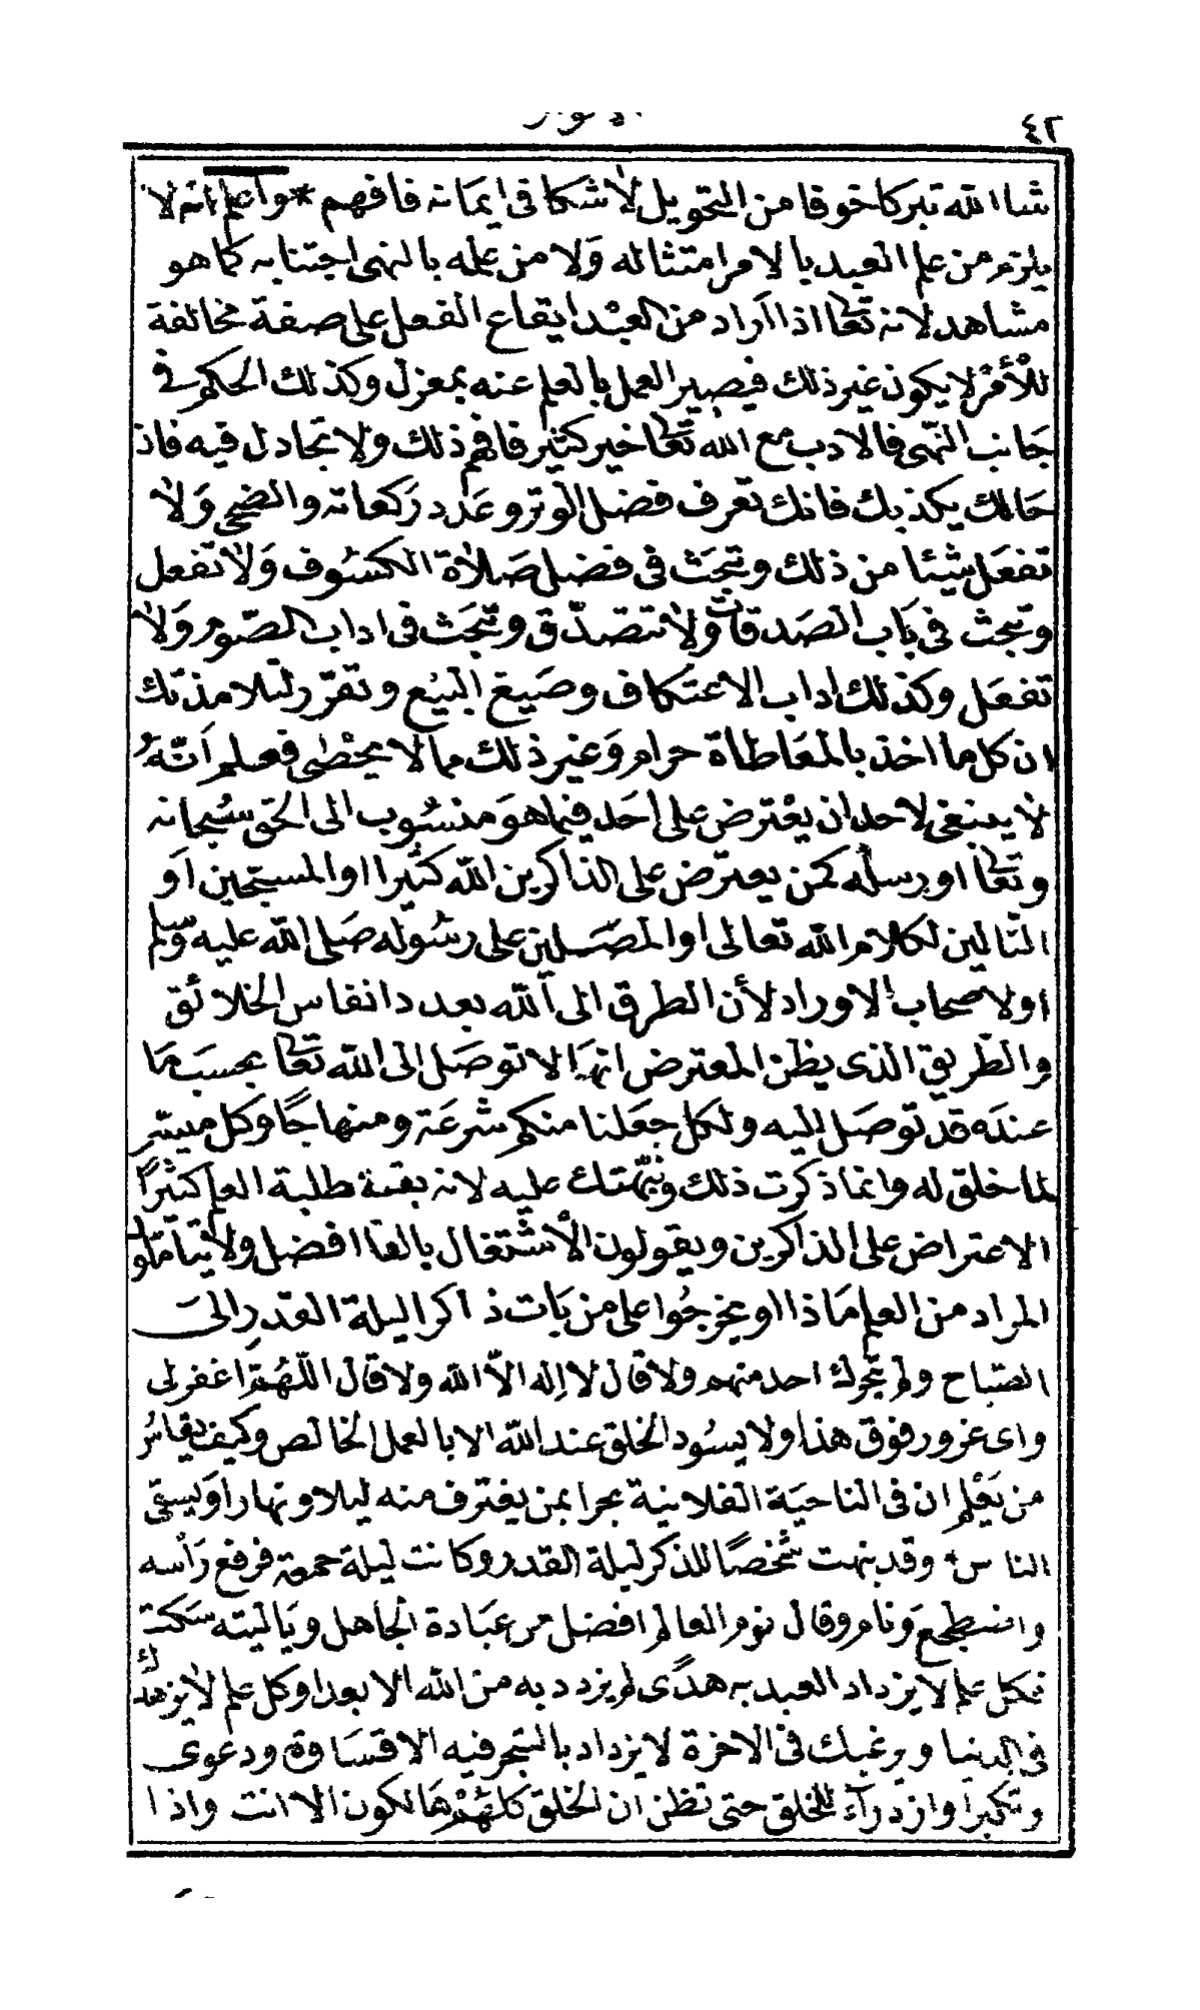 ٤٢
شاالله تبركا خوفا من التحويل لا شكا فى ايمانه فافهم * واعلم انه لا
يلزم من علم العبد بالامر امتثاله ولا من علمه بالنهى اجتنابه كما هو
مشاهد لانه تعا اذا اراد من العبد ايقاع الفعل على صفة مخالفة
للأمر لا يكون غير ذلك فيصير العمل بالعلم عنه بمعزل وكذلك الحكم فى
جانب النهى فالادب مع الله تعا خير كثير فافهم ذلك ولا تجادل فيه فان
حالك يكذبك فانك تعرف فضل الوتر وعدد ركعاته والضحى ولا
تفعل شيئا من ذلك وتبحث فى فضل صلاة الكسوف ولا تفعل
وتبحث فى باب الصدقات ولا تتصدق وتبحث فى اداب الصوم ولا
تفعل وكذلك اداب الاعتكاف وصيغ البيع وتقرر لتلامذتك
ان كل ما اخذ بالمعاطاة حرام وغير ذلك مما لا يحصى فعلم أنّهُ
لا ينبغى لاحد ان يعترض على احد فيما هو منسوب الى الحق سبحانه
وتعا او رسله كمن يعترض على الذاكرين الله كثيرا او المسبحين او
التالين لكلام الله تعالى او المصلين على رسوله صلى الله عليه وسلم
او لاصحاب الاوراد لأن الطرق الى الله بعدد انفاس الخلائق
والطريق الذى يظن المعترض انها لا توصل الى الله تعا بحسب ما
عنده قد توصل اليه ولكل جعلنا منكم شرعة ومنهاجا وكل ميسر
لما خلق له وانما ذكرت ذلك ونبهتك عليه لانه يقع من طلبة العلم كثيرا
الاعتراض على الذاكرين ويقولون الأشتغال بالعلم افضل ولا يتأملوا
المراد من العلم ماذا او يخرجوا على من بات ذاكرا ليلة القدر الى
الصباح ولم يتحرك احد منهم ولا قال لا اله الا الله ولا قال اللهم اغفر لى
واى غرور فوق هذا ولا يسود الخلق عند الله الا بالعمل الخالص وكيف يقاس
من يعلم ان فى الناحية الفلانية بحرا بمن يغترف منه ليلا ونهارا ويسقى
الناس وقد نبهت شخصا للذكر ليلة القدر وكانت ليلة جمعة فرفع رأسه
واضطجع ونام وقال نوم العالم افضل من عبادة الجاهل وياليته سكت
فكل علم لا يزداد العبد به هدى لم يزدد به من الله الا بعدا وكل علم لا يزهدك
فى الدنيا ويرغبك فى الاخرة لا يزداد بالتبحر فيه الا قساوة ودعوى
وتكبرا وازدرآء للخلق حتى تظن ان الخلق كلهم هالكون الا انت واذا